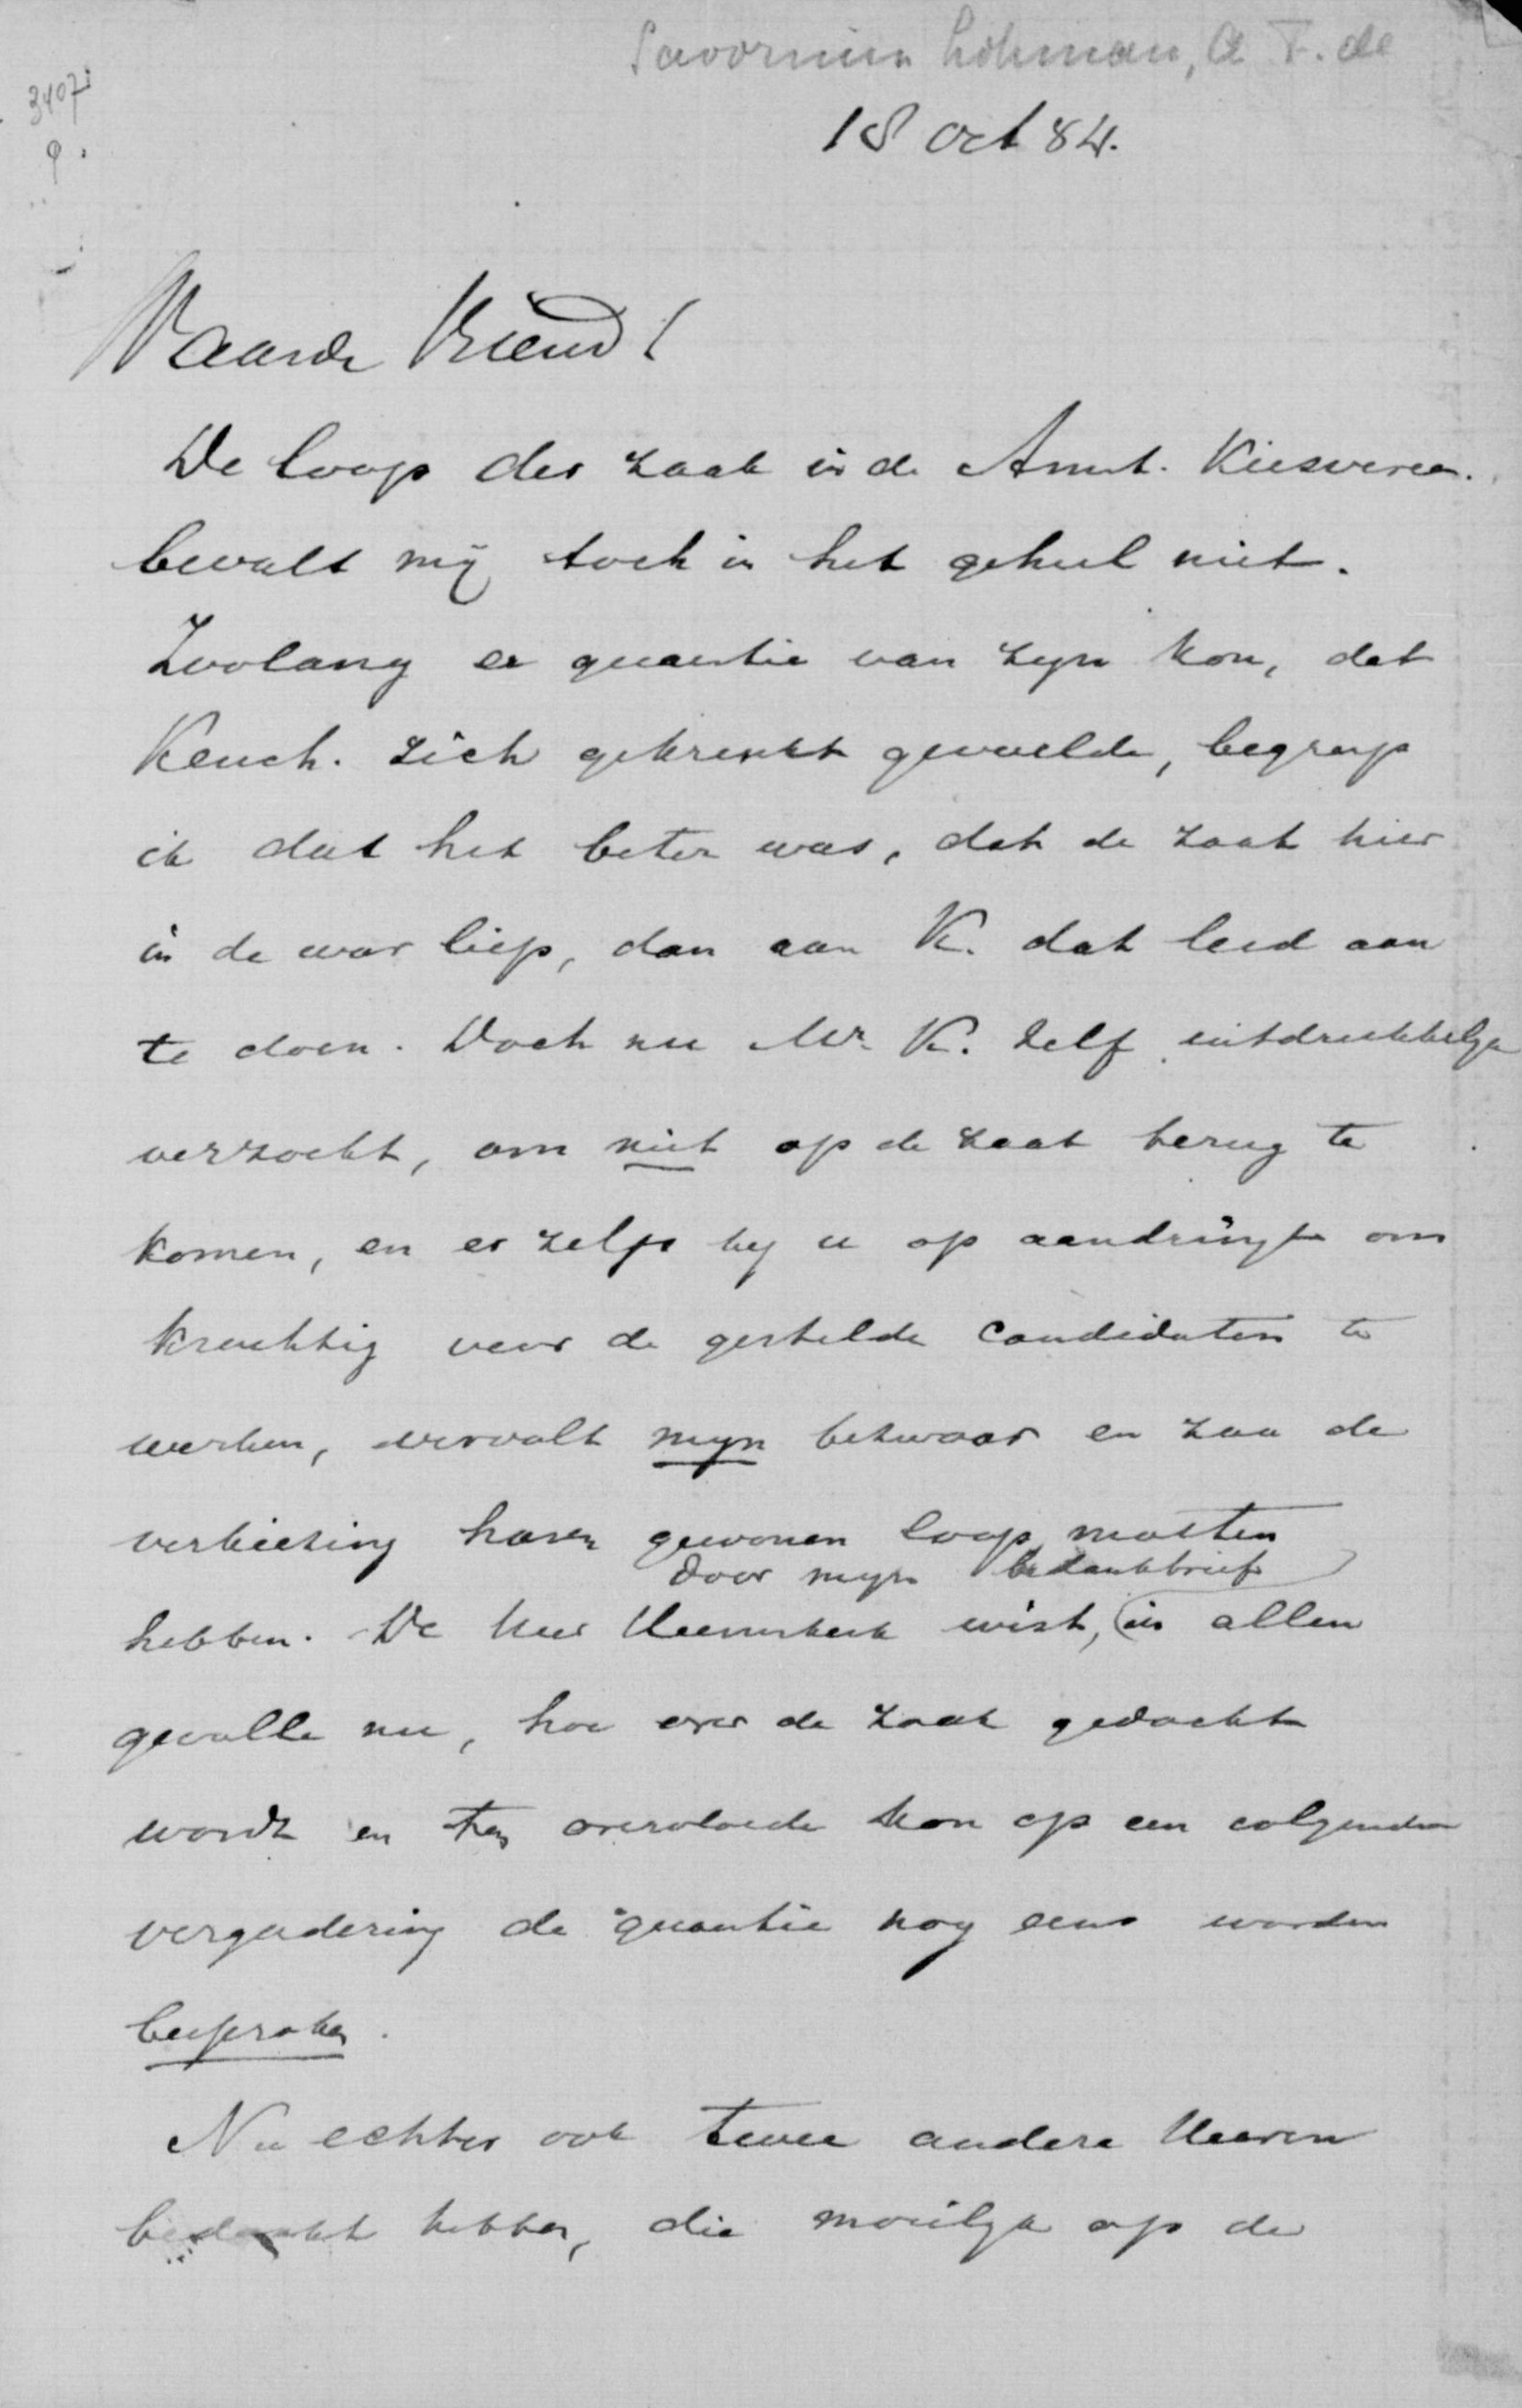 Savornin Lohman, A F. de
3407
9.
18 Oct 84.
Waarde Vriend!
De loop der zaak in de Amst. Kiesveree.
bevalt mij toch in het geheel niet.
Zoolang er quaestie van zyn kon, dat
Keuch. zich gekrenkt gevoelde, begreep
ik dat het beter was, dat de zaak hier
in de war liep, dan aan K. dat leed aan
te doen. Doch nu Mr. K. zelf uitdrukkelyk
verzocht, om niet op de zaak terug te
komen, en er zelfs by u op aandringt om
krachtig voor de gestelde candidaten te
werken, vervalt myn bezwaar en zou de
verkiezing haren gewonen loop moeten
door myn bedankbrief
hebben. De Heer Heemskerk wist, in allen
gevalle nu, hoe over de zaak gedacht
wordt en ten overvloede kon op een volgende
vergadering de quaestie nog eens worden
besproken.
Nu echter ook twee andere Heeren
bedankt hebben, die moeilyk op de